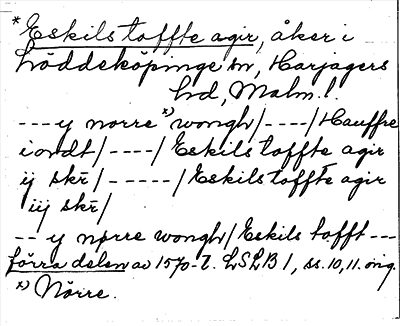 * Eskilstoffte agir, åker i
Löddeköpinge sn, Harjagers
hd, Malm. l.
--- y norre x) wongh/----/Hauffre
iordt/----/Eskilstoffte agir
ij skr̄/-----/Eskilstoffte agir
iij skr̄/
-- y nørre wongh/Eskils tofft---
förra delen av 1570-t. LSLB 1, ss. 10, 11. orig.
x) Nörre.